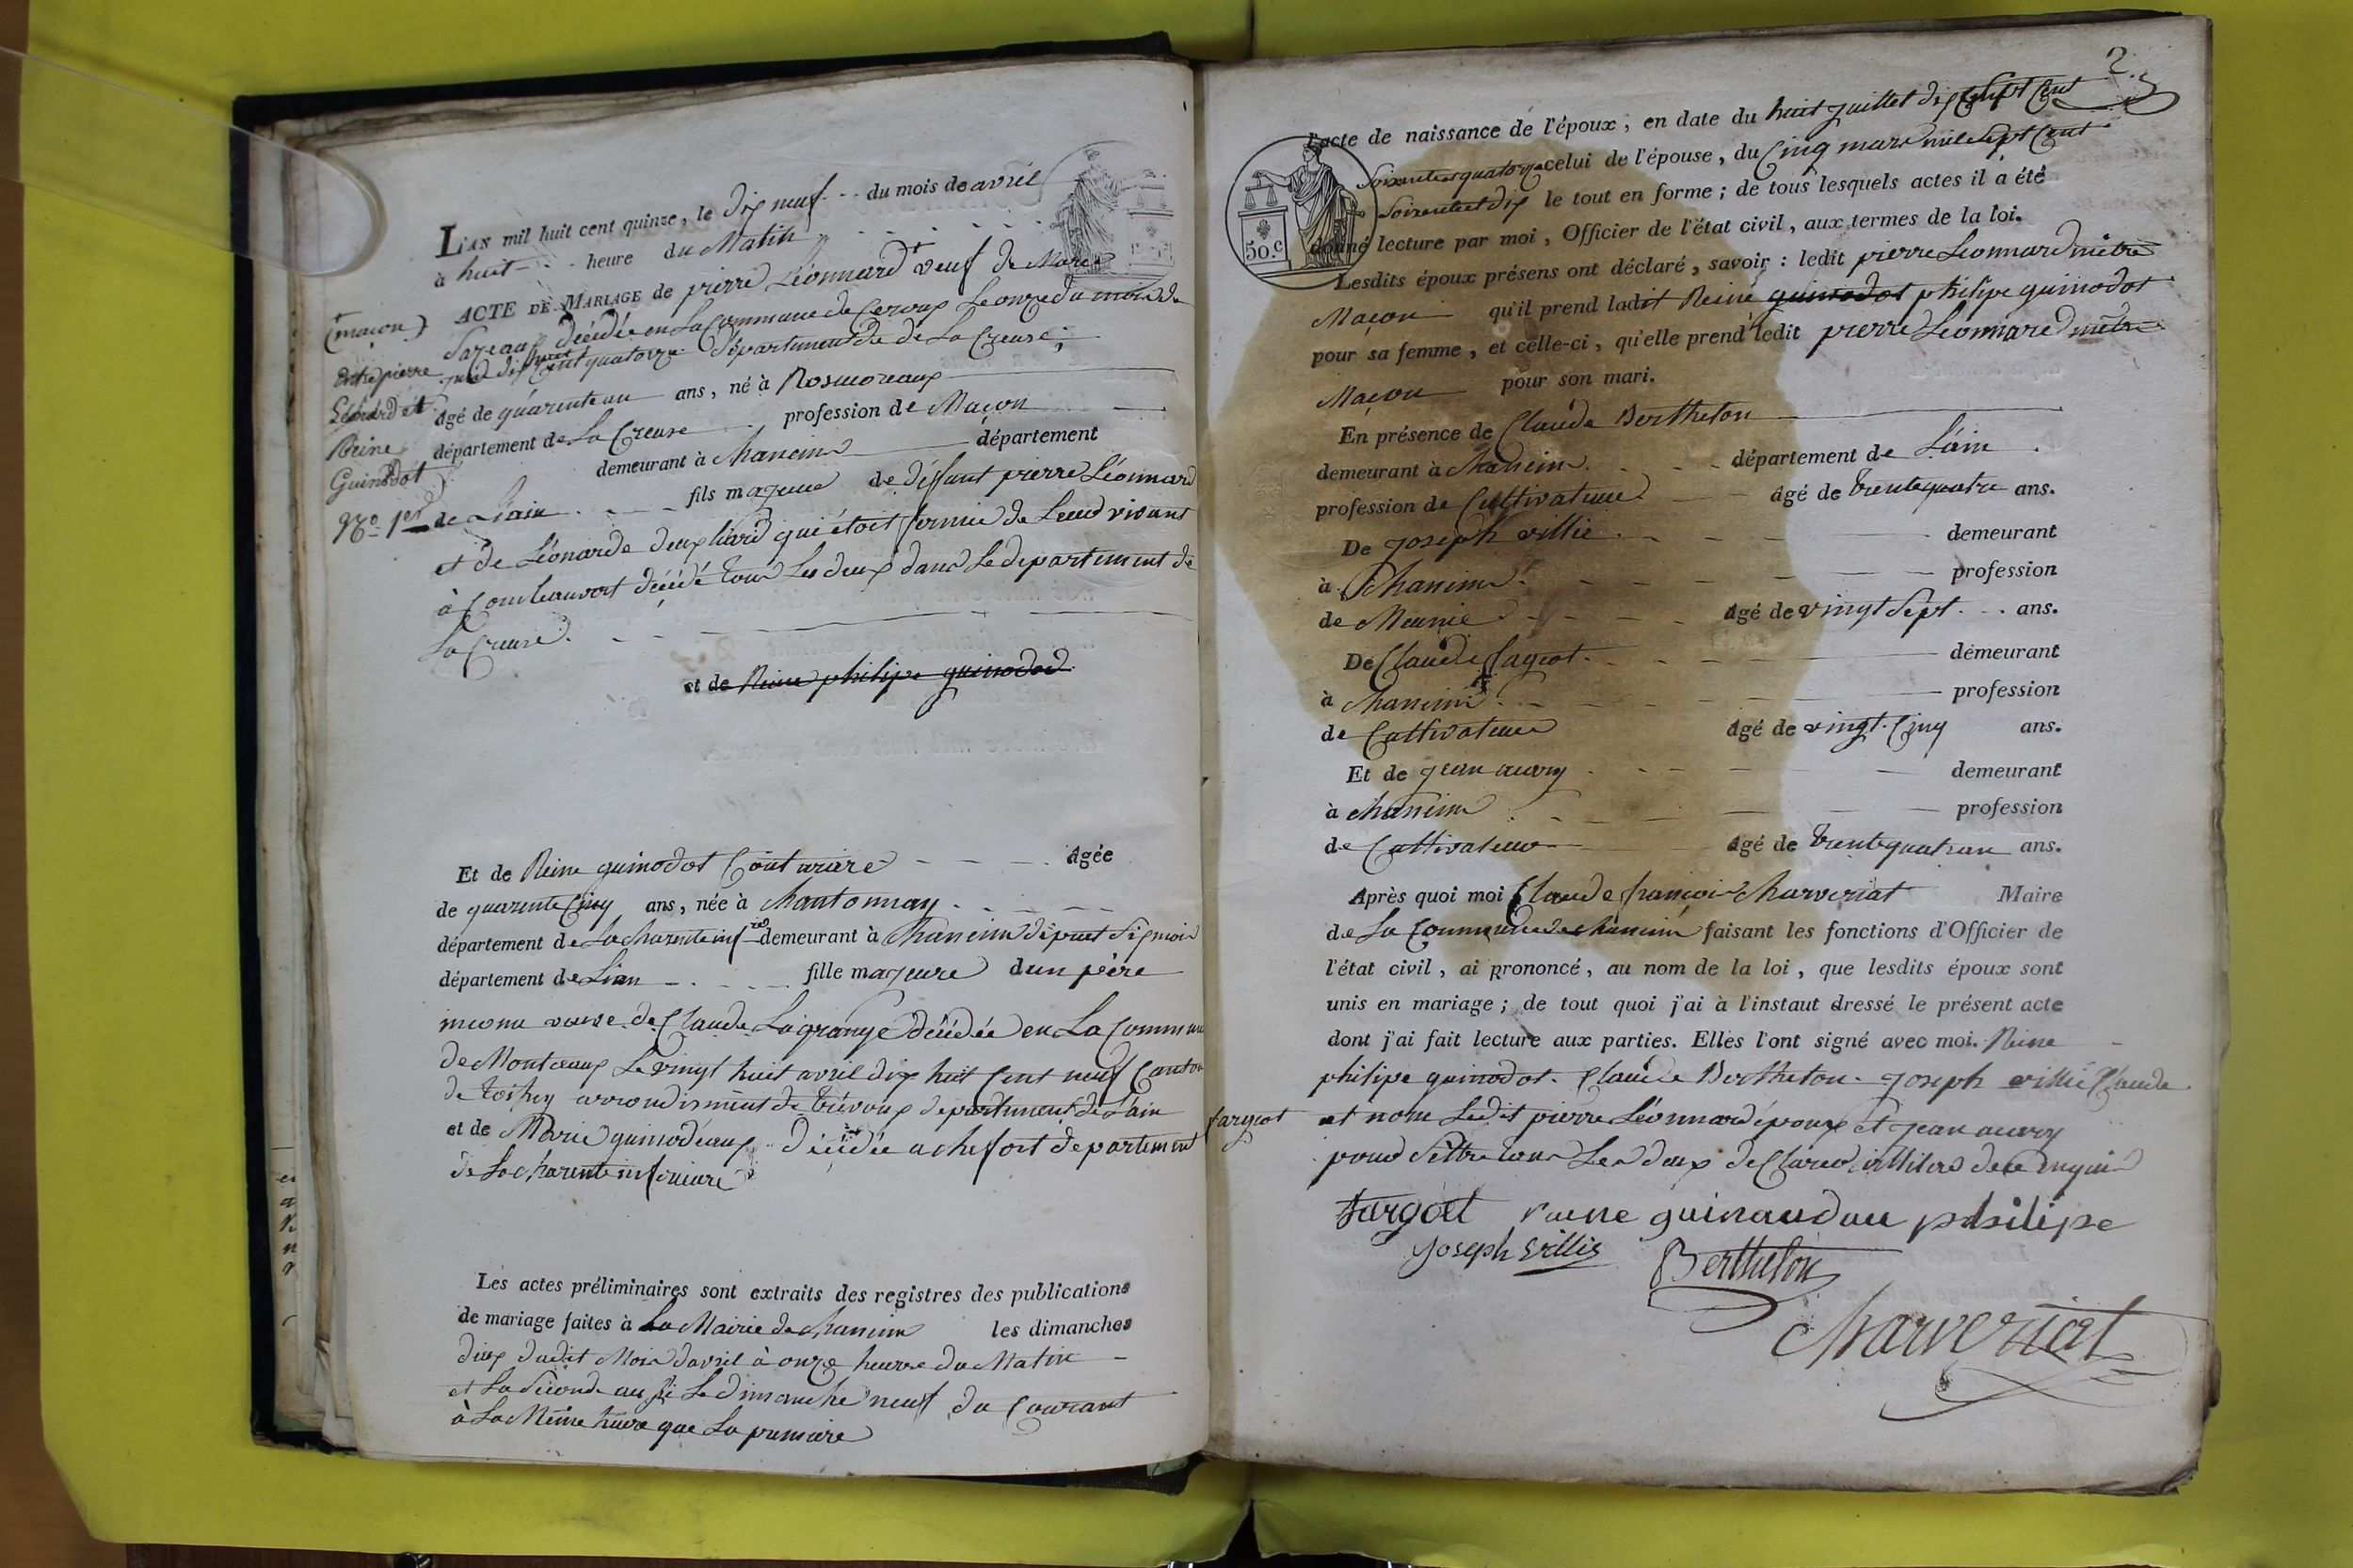 L'AN mil huit cent quinze, le dix neuf du mois de avril
à huit heure du Matin
ACTE DE MARIAGE de pierre Léonnard + veuf de Marie
(+ maçon)
décédée en La Commune de Le onze du mois de
Entre pierre
cent quatorze Département de La Creuse,
Léonard et
Reine
Guinodot
No. 1er
âgé de quarente un ans, né à
département de La Creuse profession de Maçon
demeurant à Chaneins département
de Lain fils majeur de déffunt pierre Léonnard
et de Léonarde qui étoit fermié de Leurd vivant
à décédé tous Les deux dans Le département de
La Creuse.
et de Reine philipe guinodod
Et de Reine guinodot Couturiäre âgée
de quarente Cinq ans, née à Chantonnay
département de La Charente inf re demeurant à Chaneins dépuet Six mois
département de Lian fille majeure dun père
inconu veuve de Claude Lagrange décédée en La Commune
de Montceaux Le vingt huit avril dix huit Cent neuf Canton
de Toissey arrondisment de trévoux département de L'ain
et de Marie guinodeaux décédée a département
de La Charente inférieure
Les actes préliminaires sont extraits des registres des publications
de mariage faites à La Mairie de Chaneins les dimanches
deux dudit Mois davril à onze heurre du Matin
et La Seconde aussi Le dimanche neuf du Courant
à La Mème heure que La première
2.
l'acte de naissance de l'époux, en date du huit juillet dix Sept Cent
Soixante quatorze celui de l'épouse, du Cinq mars mil Sept Cent
Soixente et dix le tout en forme; de tous lesquels actes il a été
donné lecture par moi, Officier de l'état civil, aux termes de la loi.
50.c
Lesdits époux présens ont déclaré, savoir: ledit pierre Léonnard mètre
Maçon qu'il prend ladit Reine guinodot philipe guinodot
pour sa femme, et celle-ci, qu'elle prend ledit pierre Léonnared mètre
Maçon pour son mari.
En présence de Claude Berthelon
demeurant à Chaneins département de L'ain
profession de Cultivateur âgé de trente quatre ans.
De joseph villié demeurant
à Chaneins profession
de Meunié âgé de vingt Sept ans.
De Claude fargeot demeurant
à Chaneins profession
de Cultivateur âgé de vingt Cinq ans.
Et de jean auvry demeurant
à Chaneins profession
de Cultivateur âgé de ans.
Après quoi moi Claude françois Charveriat Maire
de La Commune de Chaneins faisant les fonctions d'Officier de
l'état civil, ai prononcé, au nom de la loi, que lesdits époux sont
unis en mariage; de tout quoi j'ai à l'instant dressé le présent acte
dont j'ai fait lecture aux parties. Elles l'ont signé avec moi. Reine
philipe guinodot. Claude Berthelon. joseph villié Claude
fargeot et nom Ledit pierre Léonnard époux et jean auvry
pour tous Les deux de Ce Enquis
fargöet raene guinaudau philipe
joseph villié Berthelon
Charveriat